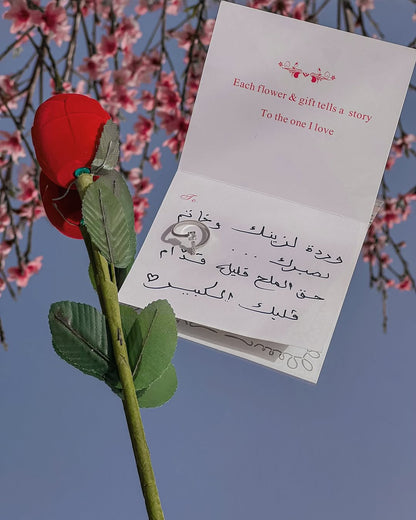 Each flower & gift tells a story
To the one I love
To:
وردة لزينك وخاتم
لصبرك ...
حق الملح قليل قدام
قلبك الكبير